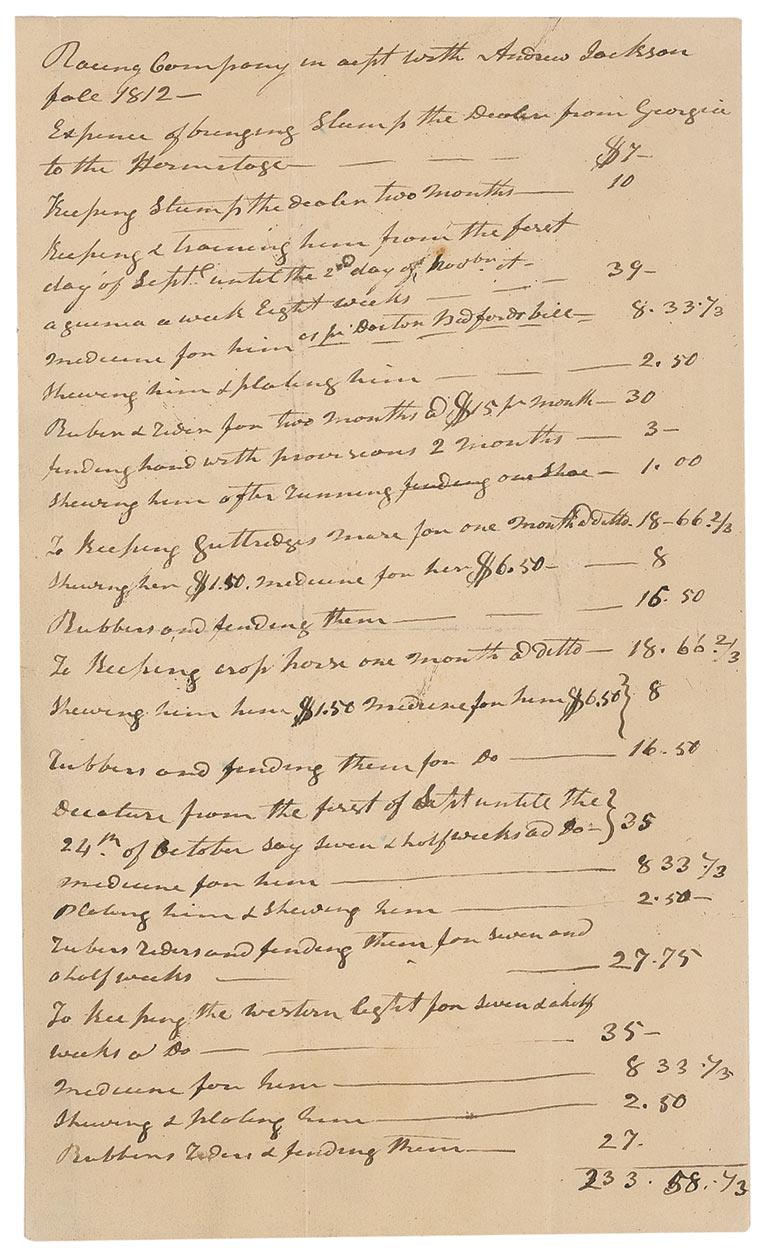 Racing Company in acpt with Andrew Jackson
fall 1812—
Expence of bringing Stump the Dealer from Georgia
to the Hermitage — — — $7–
Keeping Stump the dealer two months — 10
Keeping & training him from the first
day of Septr. until the 2d day of Novbr. at–
a guinea a week Eight weeks — — — 39–
medicine for him as pr Docton Bedfords bill — 8. 33 1/3
Shewing him & plating him — — — 2. 50
Ruber & rider for two months @ $15 pr month — 30
finding hand with provisions 2 months — 3–
Shewing him after running finding one Shoe — 1. 00
To Keeping Guttredges mare for one month @ ditto 18–66 2/3
Shewing her $1.50. medicine for her $6.50– — 8
Rubbers and finding them — — — 16. 50
To Keeping crop horse one month @ ditto — 18. 66 2/3
Shewing him him $1.50 medicine for him $6.50 } 8
rubbers and finding them for Do — 16. 50
Decature from the first of Sept untill the }
24th. of October say seven & half weeks ad Do– } 35
medicine for him — 8 33 1/3
Plating him & Shewing him — 2. 50—
rubers riders and finding them for seven and
a half weeks — — 27. 75
To Keeping the western light for seven & a half
weeks a Do — — 35–
medicine for him — 8 33 1/3
Shewing & plating him — 2. 50
Rubbers riders & finding them — 27.
233. 58. 1/3